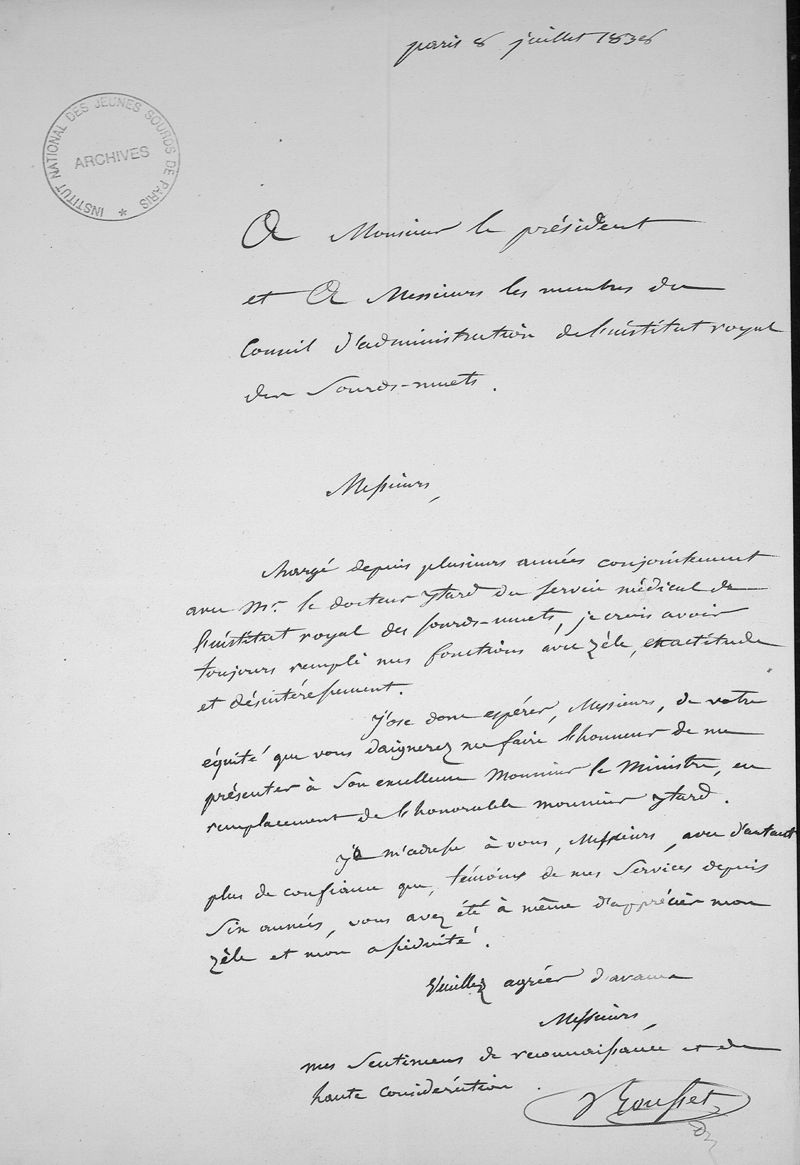 paris 8 juillet 1838
INSTITUT NATIONAL DES JEUNES SOURDS DE PARIS *
ARCHIVES
A Monsieur le président
et A Messieurs les membres du
Conseil d'administration de l'institut royal
des Sourds-muets.
Messieurs,
Chargé depuis plusieurs années conjointement
avec Mr. le docteur ytard du service médical de
l'institut royal des sourds-muets, je crois avoir
toujours rempli mes fonctions avec zèle, exactitude
et désintéressement.
J'ose donc espérer, Messieurs, de votre
équité que vous daignerez me faire l'honneur de me
présenter à Son excellence Monsieur le Ministre, en
remplacement de l'honorable monsieur ytard.
Je m'adresse à vous, Messieurs, avec d'autant
plus de confiance que, témoins de mes Services depuis
Six années, vous avez été à même d'apprécier mon
zèle et mon assiduité.
Veuillez agréer d'avance
Messieurs,
mes Sentimens de reconnaissance et de
haute considération.